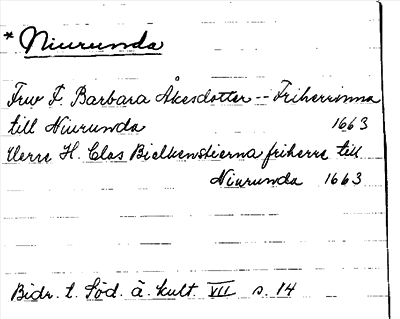 * Niurunda
Frw F. Barbara Åkesdotter -- Friherrinna
till Niurunda 1663
Herre H. Clas Bielkenstierna friherre till
Niurunda 1663
Bidr. t. Söd. ä. kult. VII s. 14